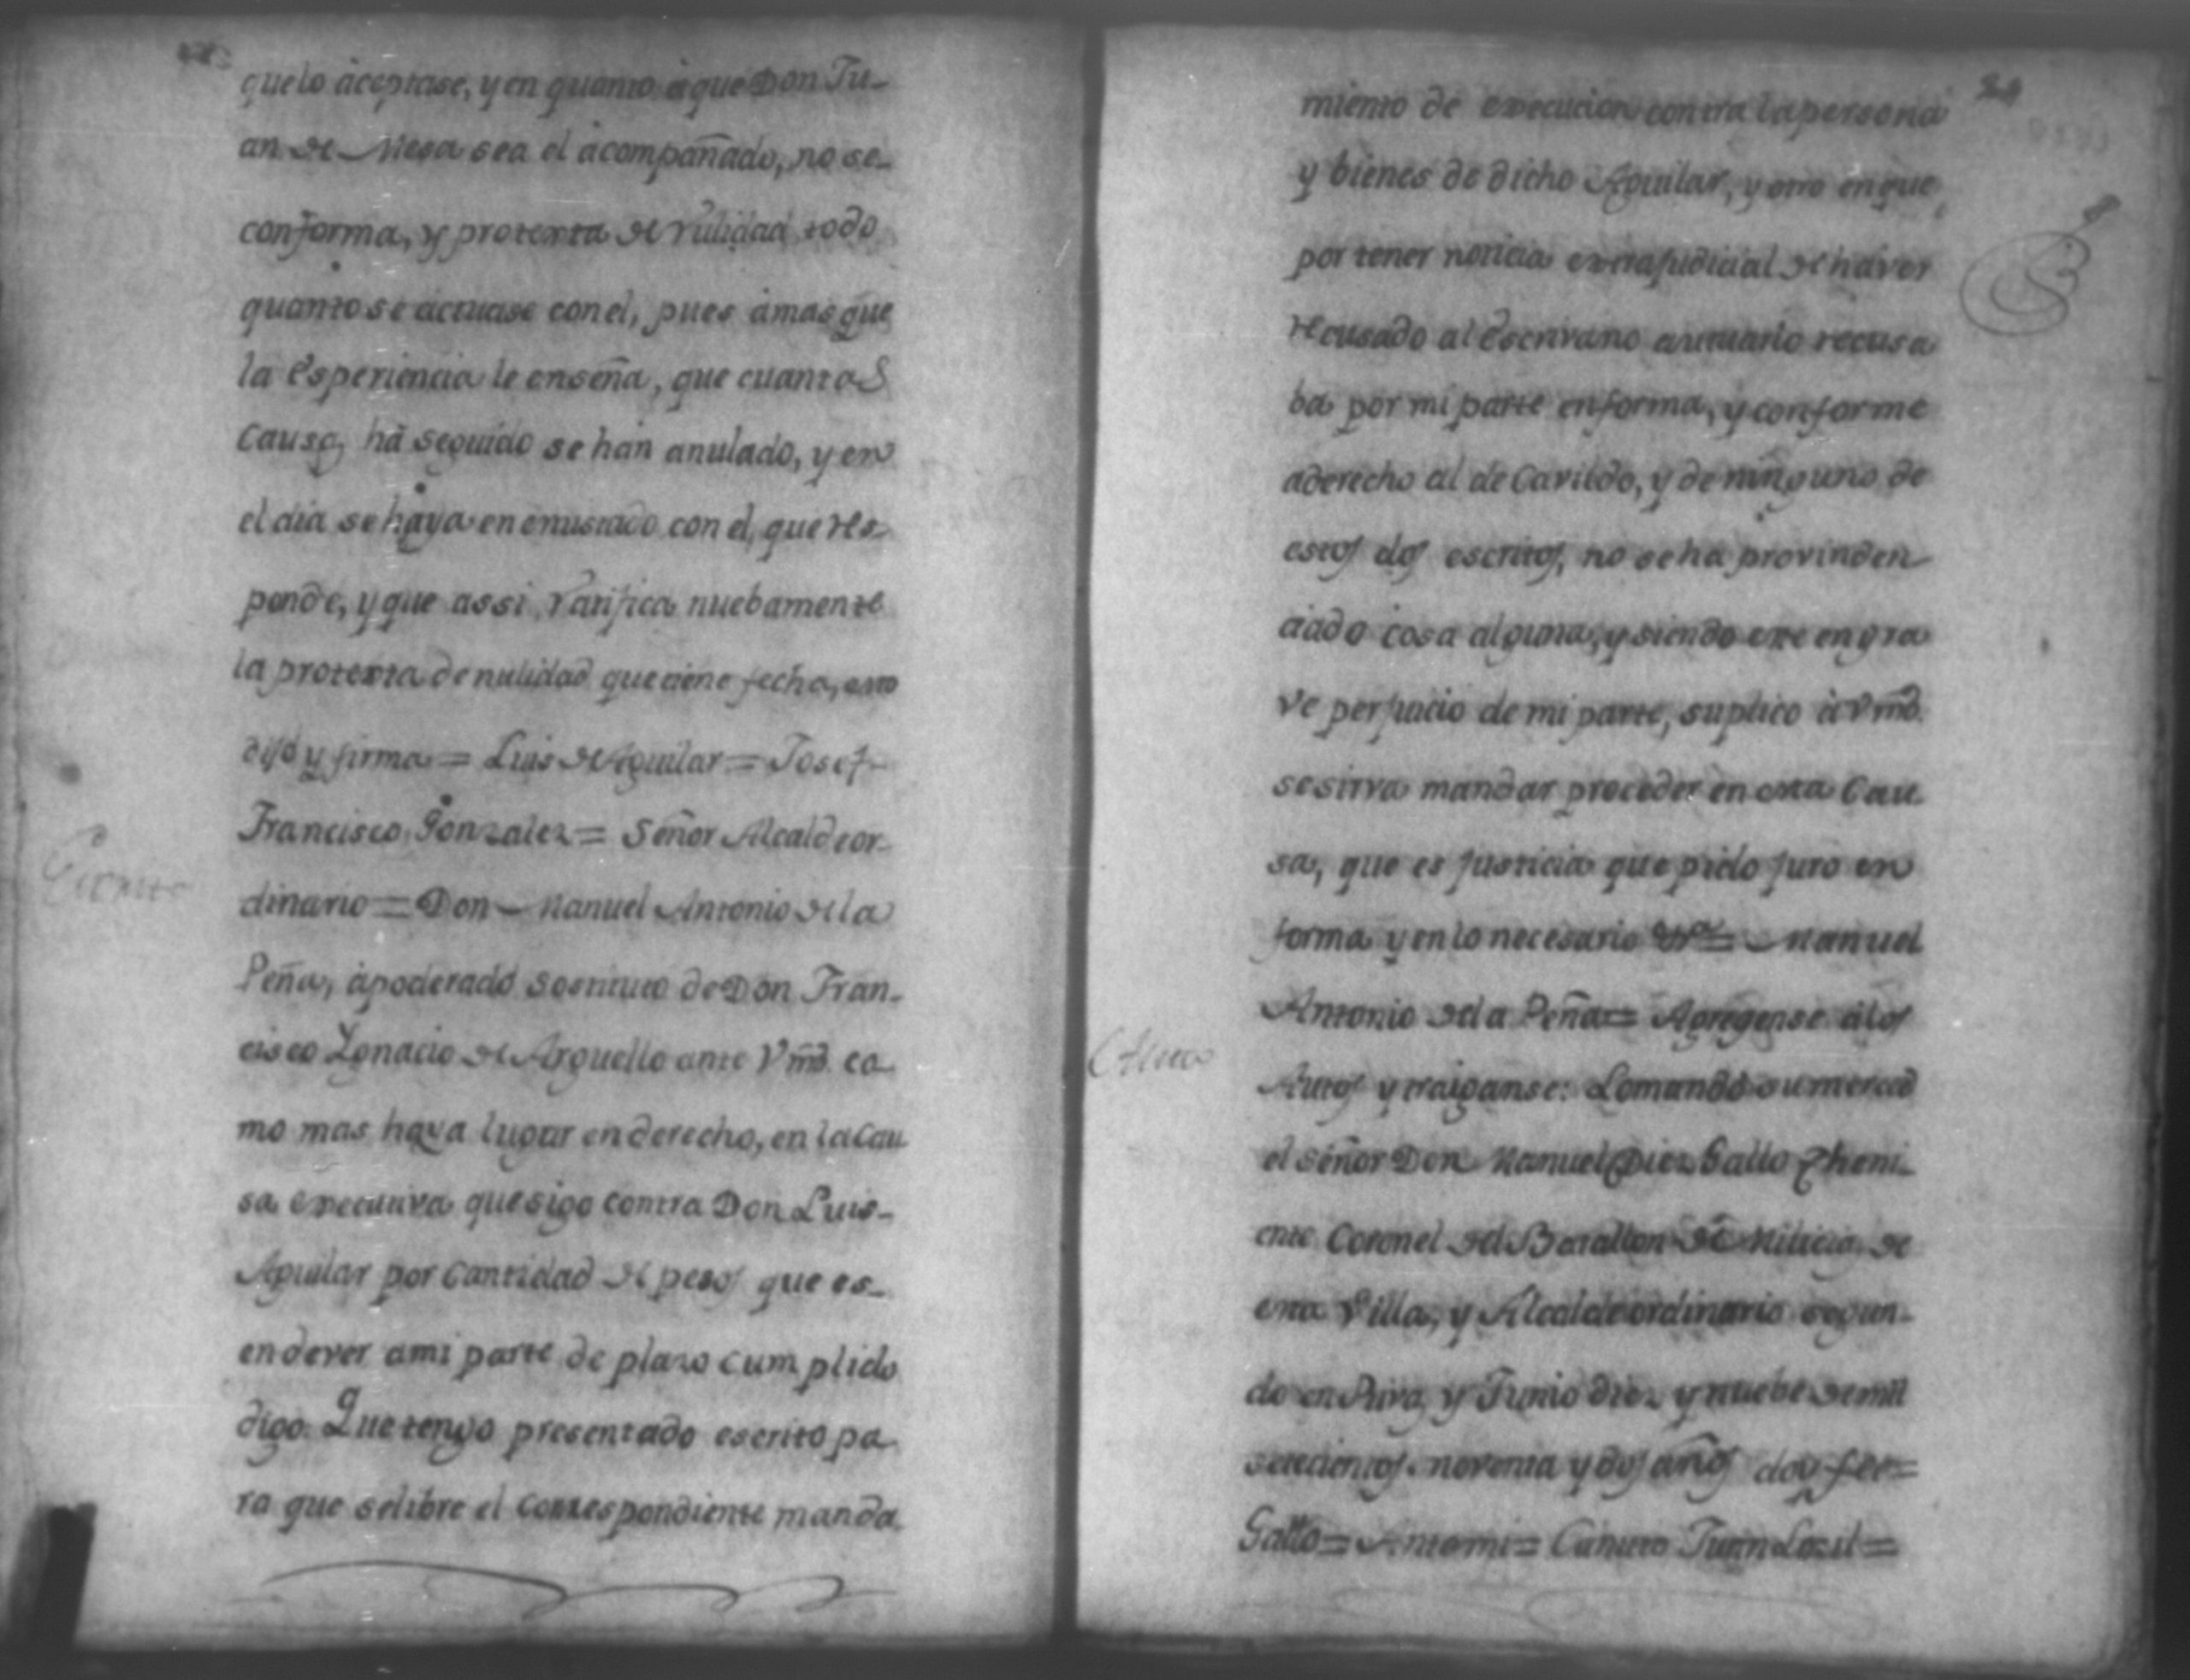 que lo aceptase, y en quanto à que Don Ju-
an de Mesa sea el acompañado, no se
conforma, y protexta de nulidad todo
quanto se actuase con el, pues amas que
la esperiencia le enseña, que cuantas
Causas, há seguido se han anulado, y en
el dia se haya en enmistado con el, que res-
ponde, y que assi ratifica nuebamente
la protexta de nulidad que tiene fecha, esto
dijo y firma = Luis de Aguilar = Josef
Francisco Gonzalez = Señor Alcalde or-
Escrito
dinario = Don Manuel Antonio de la
Peña, àpoderado sostituto de Don Fran-
cisco Ygnacio de Arguello ante Vmd. co
mo mas haya lugar en derecho, en la Cau
sa executiva que sigo contra Don Luis
Aguilar por Cantidad de pesos que es-
en dever a mi parte de plazo cumplido
digo. Que tengo presentado escrito pa
ra que se libre el Correspondiente manda.
miento de execucion contra la persona
y bienes de dicho Aguilar, y otro en que
por tener noticia extrajudicial de haver
recusado al Escrivano actuario recusa
ba por mi parte en forma, y conforme
a derecho al de Cavildo, y de ninguno de
estos dos escritos, no se ha providen
ciado cosa alguna, y siendo este en gra
ve perjuicio de mi parte, suplico à Vmd.
se sirva mandar proceder en esta Cau
sa, que es justicia que pido juro en
forma y en lo necesario &a = Manuel
Antonio de la Peña = Agregense à los
Auto
Autos y traiganse: Lo mandó su merced
el señor Don Manuel Diez Gallo Theni-
ente Coronel del Batallon de Milicias de
esta Villa, y Alcalde ordinario segun-
do en Puno, y Junio diez y nuebe de mil
setecientos noventa y dos años doy fee =
Gallo = Antemi = Canuto